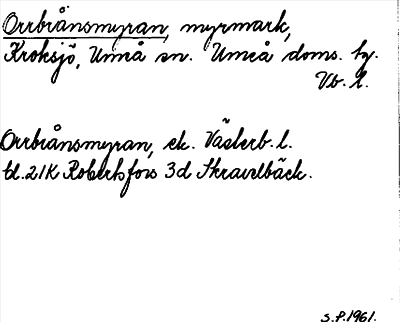 Orrbränsmyran, myrmark,
Kroksjö, Umeå sn. Umeå doms. hg.
Vb. l.
Orrbränsmyran, ek. Västerb. l.
bl. 21K Robertsfors 3d Skravelbäck.
S.P. 1961.